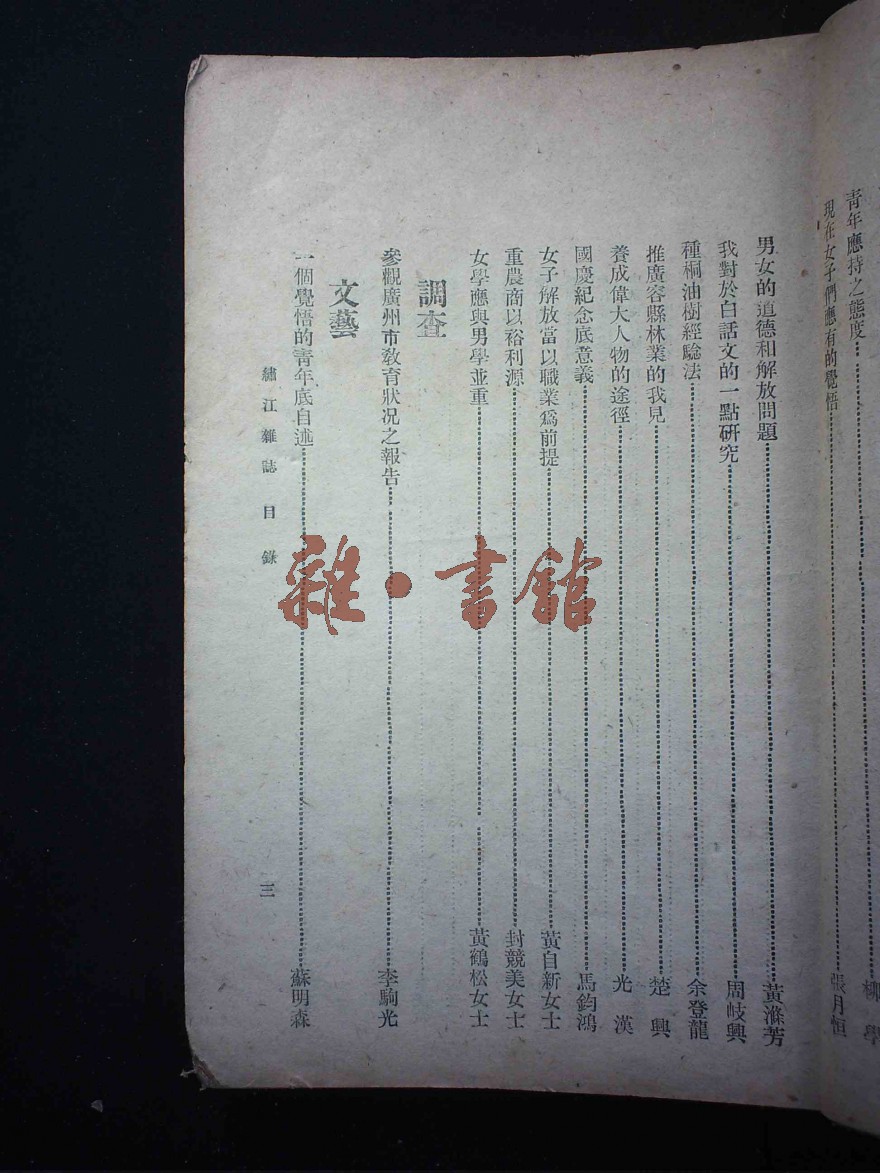 青年應持之態度……柳 學
現在女子們應有的覺悟……張月恒
男女的道德和解放問題……黃滌芳
我對於白話文的一點研究……周岐興
種桐油樹經驗法……余登龍
推廣容縣林業的我見……楚 興
養成偉大人物的途徑……光 漢
國慶紀念底意義……馬鈞鴻
女子解放當以職業爲前提……黃自新女士
重農商以裕利源……封競美女士
女學應與男學並重……黃鶴松女士
調查
參觀廣州市敎育狀况之報告……李駒光
文藝
一個覺悟的靑年底自述……蘇明森
繡江雜誌 目錄 三
雜·書館